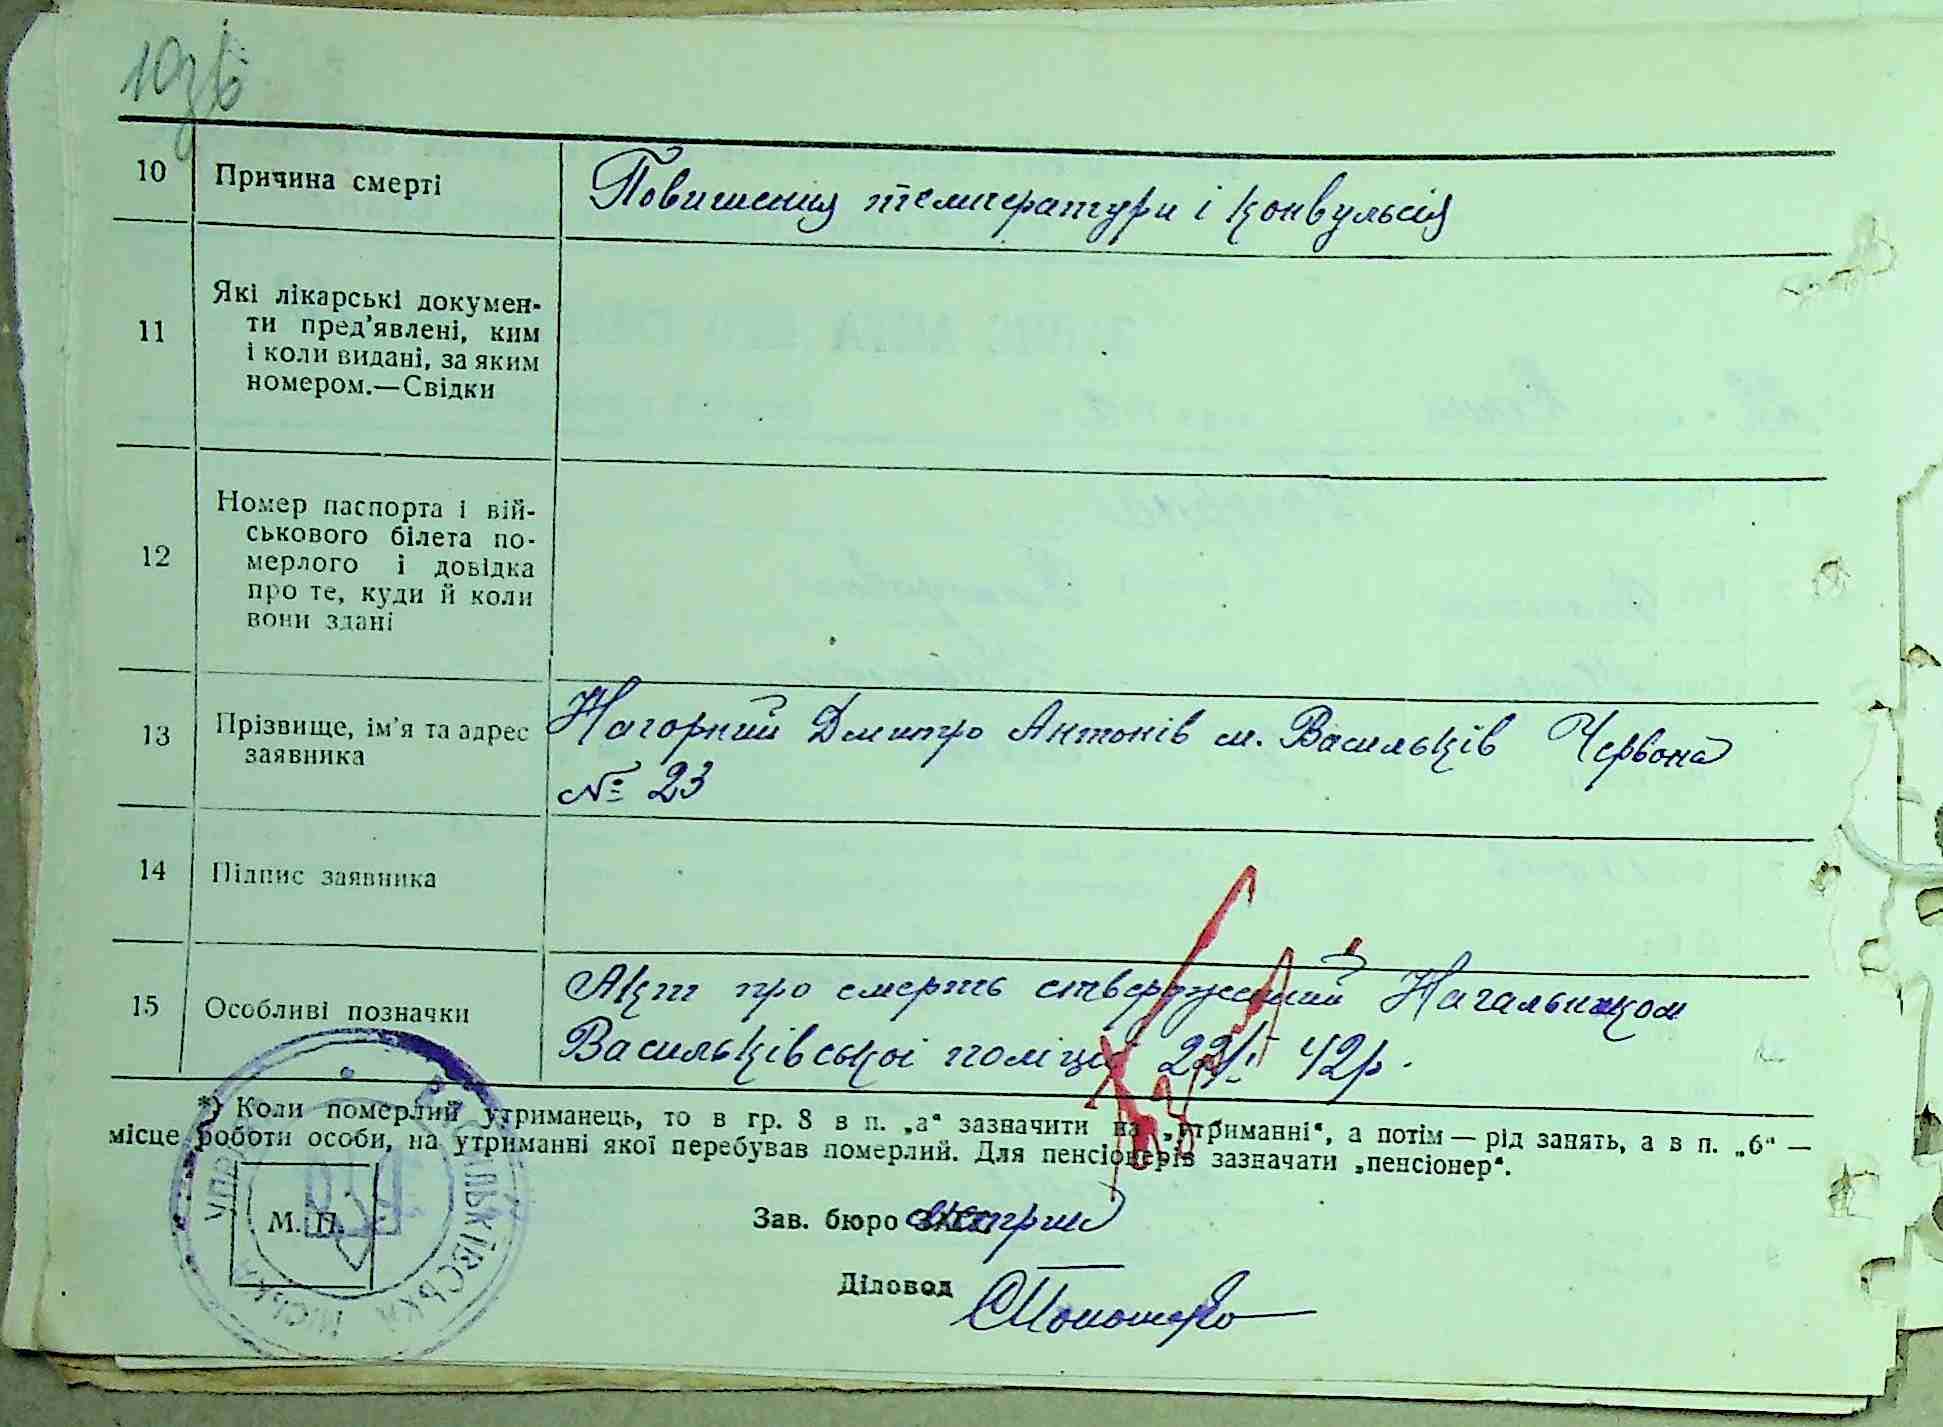 10зв
10 Причина смерті Повишения температури і конвульсія
11 Які лікарські докумен-
ти пред’явлені, ким
і коли видані, за яким
номером.—Свідки
12 Номер паспорта і вій-
ськового білета по-
мерлого і довідка
про те, куди й коли
вони здані
13 Прізвище, ім’я та адрес
заявника
Нагорний Дмитро Антонів м. Васильків Червона
№ 23
14 Підпис заявника
15 Особливі позначки
Акт про смерть стверджений Начальником
Васильківської поліції 22/II 42р.
*) Коли померлий утриманець, то в гр. 8 в п. „а“ зазначити на „утриманні“, а потім — рід занять, а в п. „б“ —
місце роботи особи, на утриманні якої перебував померлий. Для пенсіонерів зазначати „пенсіонер“.
М. П.
ВАСИЛЬКІВСЬКА МІСЬКА
Зав. бюро
Діловод